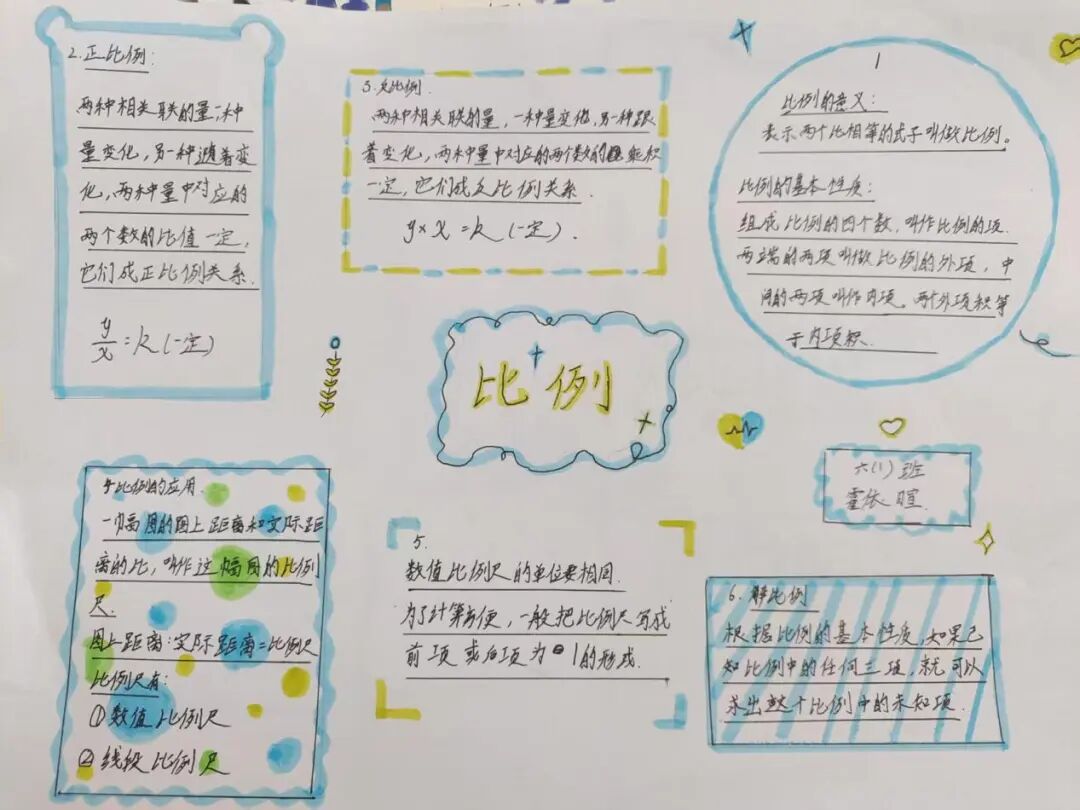 比例
1
比例的意义：
表示两个比相等的式子叫做比例。
比例的基本性质：
组成比例的四个数，叫作比例的项.
两端的两项叫做比例的外项，中
间的两项叫作内项。两个外项积等
于内项积.
2.正比例：
两种相关联的量，一种
量变化，另一种随着变
化，两种量中对应的
两个数的比值一定，
它们成正比例关系.
y/x=k(一定)
3.反比例.
两种相关联的量，一种量变化，另一种跟
着变化，两种量中对应的两个数的乘积
一定，它们成反比例关系.
y×x=k(一定).
4比例的应用.
一幅图的图上距离和实际距
离的比，叫作这幅图的比例
尺.
图上距离：实际距离=比例尺
比例尺有：
①数值比例尺
②线段比例尺
5.
数值比例尺的单位要相同.
为了计算方便，一般把比例尺写成
前项或后项为1的形式.
6.解比例
根据比例的基本性质，如果已
知比例中的任何三项，就可以
求出这个比例中的未知项.
六(1)班
霍依暄